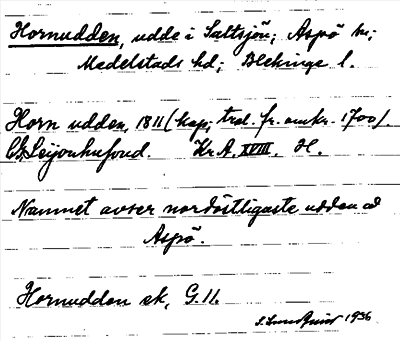 Hornudden, udde i Saltsjön; Aspö sn;
Medelstads hd; Blekinge l.
Horn udden, 1811 (kop; trol. fr. omkr. 1700).
C.G. Leijonhufvud. Kr.A. XVIII. H.
Namnet avser nordöstligaste udden av
Aspö.
Hornudden ek, G.11.
S. Lundquist 1936